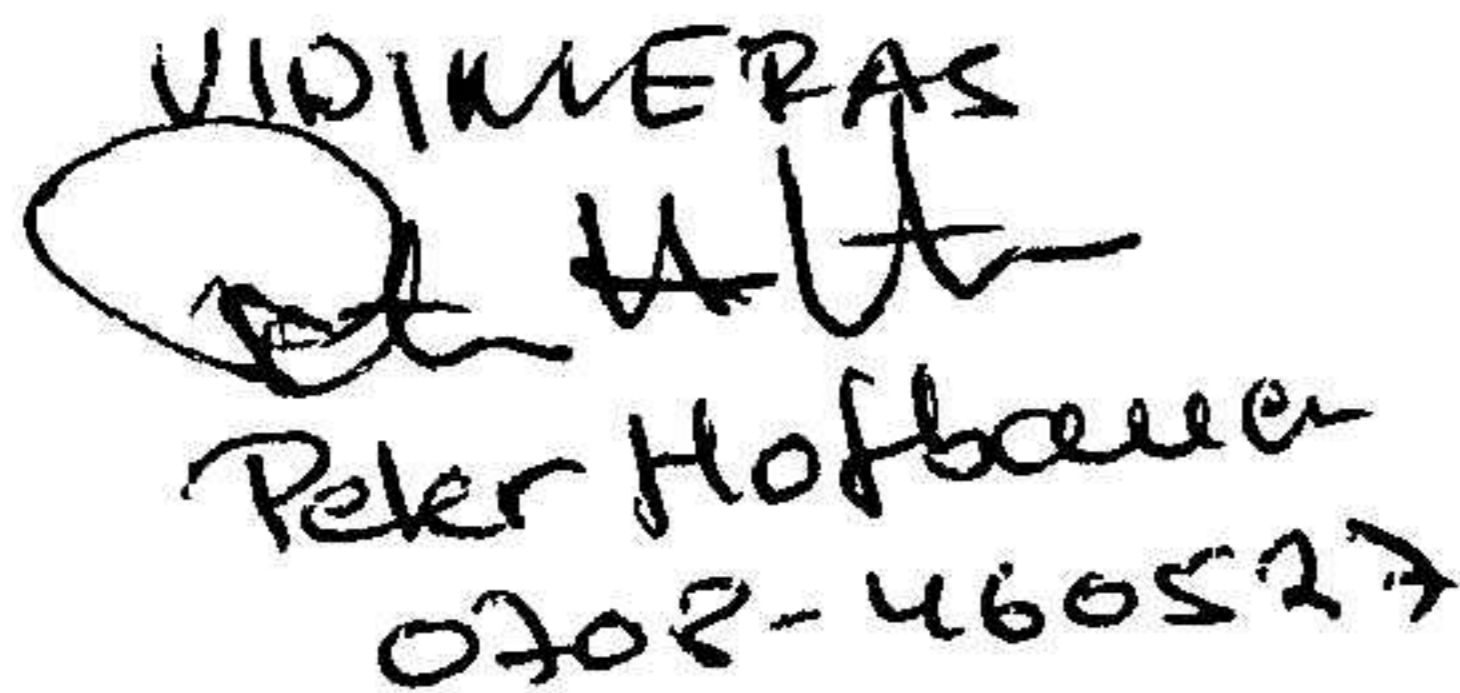 VIDIMERAS
Peter Hofbauer
0708-460527